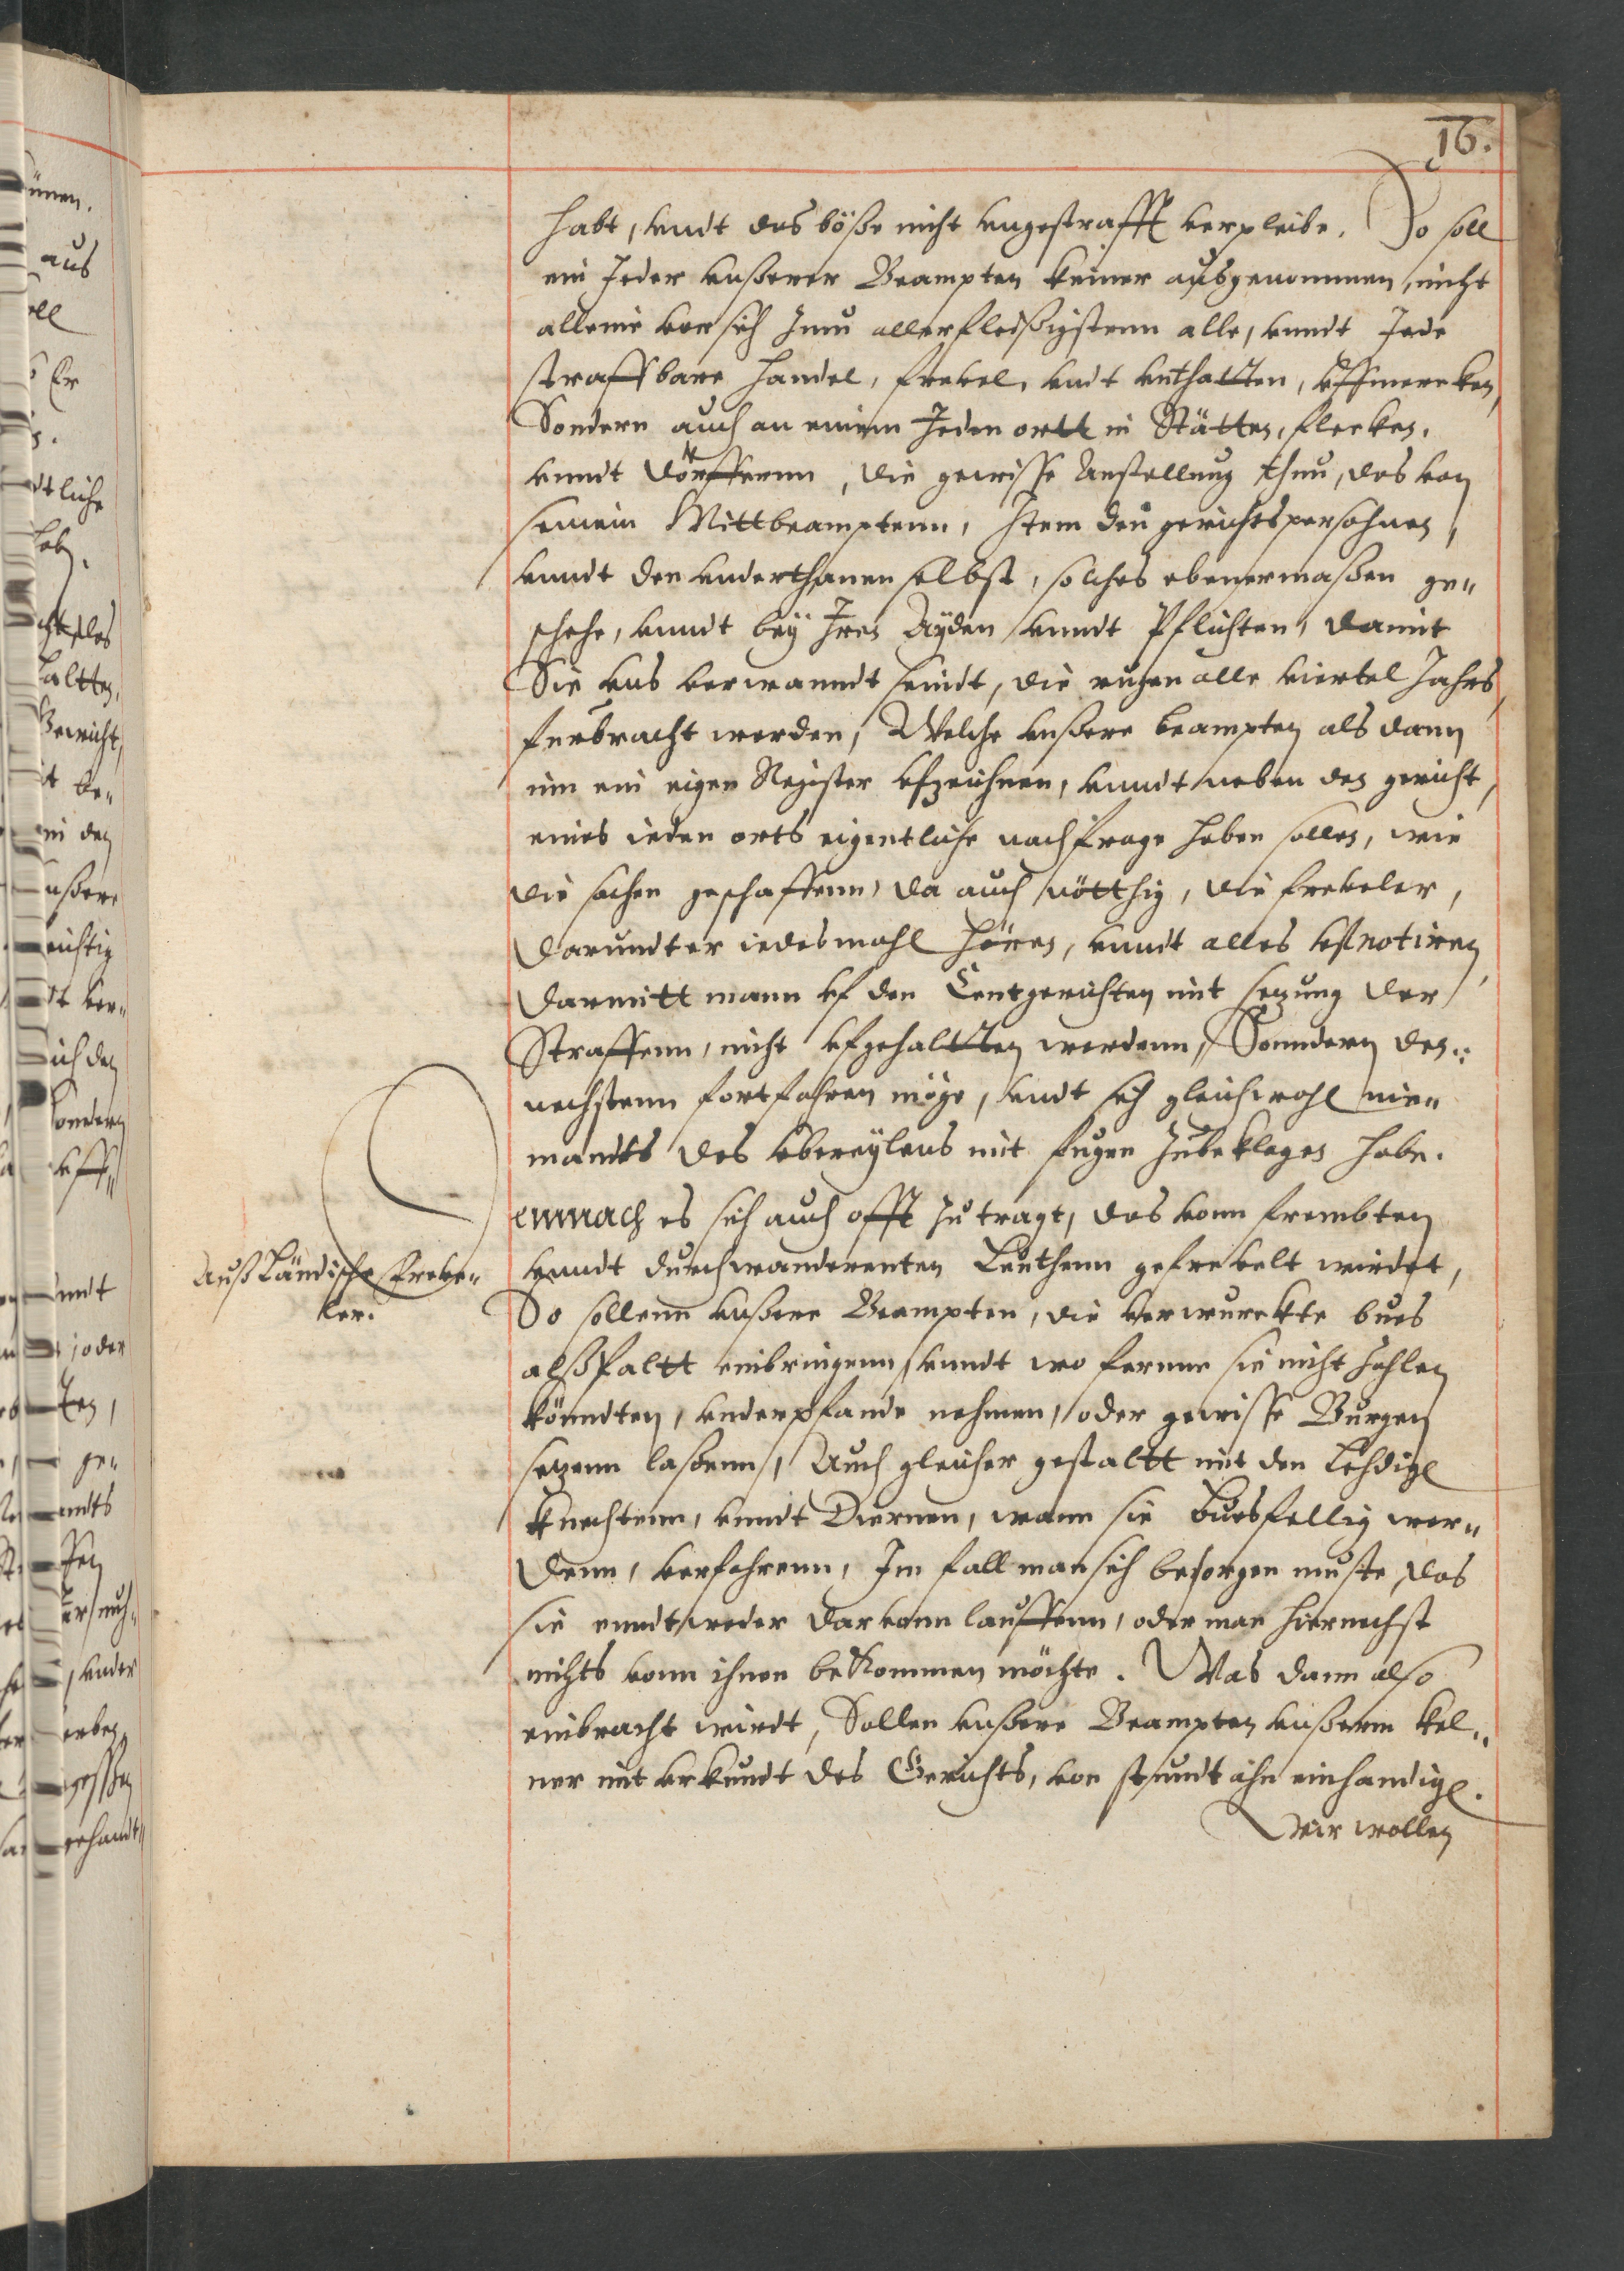 16.
habt, vndt das böße nicht vngestrafft verpleibe. So soll
ein Jeder vnßerer Beampten keiner außgenommen, nicht
alleine vor sich Jnn allerfleißigstenn alle, vnndt Jede
straffbare handel, frevel, vndt vnthatten, vffmercken,
Sondern auch an einem Jeden ortt in Stätten, flecken,
vnndt dörffernn, die gewisse Anstellung thun, das von
seinem Mittbeamptenn, Jtem den gerichtspersohnen,
vnndt den vnderthanen selbst, solches ebenermaßen ge„
schehe, vnndt bey Jren Ayden vnndt Pflichten, damit
Sie vns verwanndt seindt, die rugen alle viertel Jahrs,
fürbracht werden, Welche vnßere beampten als dann
inn ein eigen Register vfzeichnen, vnndt neben den gericht,
eines ieden orts eigentliche nachfrage haben sollen, wie
die sachen geschaffenn, da auch nötthig, die freveler,
darundter iedesmahl hören, vnndt alles vffnotiren,
darmitt mann vf den Centgerichten mit sezung der
Straffenn, nicht vfgehaltten werdenn, Sonndern den„
nechstenn fortfahren möge, vndt sich gleichwohl nie„
mandts des vbereylens mit fugen zubeklagen habe.
Außländische Freve„
ler.
Demnach es sich auch offt zutragt, das vonn frembten
vnndt durchwanderenten Leuthenn gefrevelt wirdet,
So sollenn vnßere Beampten, die verwurckte bues
alßbaltt einbringenn, vnndt wo ferrne sie nicht zahlen
könndten, vnderpfande nehmen, oder gewisse Burgen
sezenn laßenn, Auch gleicher gestaltt mit den Lehdigen
knechtenn, vnndt Diernen, wann sie buesfellig wer„
denn, verfahrenn, Jm fall man sich besorgen muste, das
sie enndtweder darvonn lauffenn, oder man hiernechst
nichts vonn ihnen bekommen möchte. Was dann also
einbracht wirdt, Sollen vnßere Beampten vnßerm kel„
ner mit vrkundt des Gerichts, von stundt ahn einhandigen.
Wir wollen